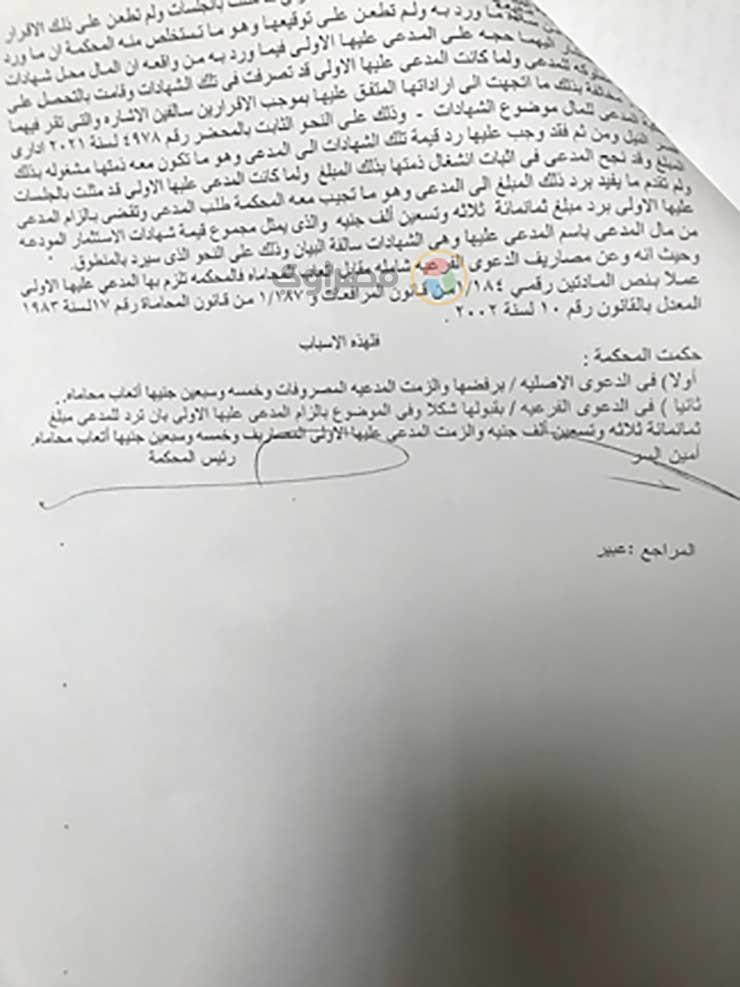 مثلت بالجلسات ولم تطعن على ذلك الاقرار
ما ورد به ولم تطعن على توقيعها وهو ما تستخلص منه المحكمة ان ما ورد
اليهما حجه على المدعى عليها الاولى فيما ورد به من واقعه ان المال محل شهادات
للمدعى ولما كانت المدعى عليها الاولى قد تصرفت فى تلك الشهادات وقامت بالتحصل على
بذلك ما اتجهت الى اراداتها المتفق عليها بموجب الاقرارين سالفين الاشاره والتى تقر فيهما
المدعى للمال موضوع الشهادات . وذلك على النحو الثابت بالمحضر رقم ٤٩٧٨ لسنة ٢٠٢١ ادارى
النيل ومن ثم فقد وجب عليها رد قيمة تلك الشهادات الى المدعى وهو ما تكون معه ذمتها مشغوله بذلك
المبلغ وقد نجح المدعى فى اثبات انشغال ذمتها بذلك المبلغ ولما كانت المدعى عليها الاولى قد مثلت بالجلسات
ولم تقدم ما يفيد برد ذلك المبلغ الى المدعى وهو ما تجيب معه المحكمة طلب المدعى وتقضى بالزام المدعى
عليها الاولى برد مبلغ ثمانمائة ثلاثه وتسعين ألف جنيه والذى يمثل مجموع قيمة شهادات الاستثمار المودعه
من مال المدعى باسم المدعى عليها وهى الشهادات سالفة البيان وذلك على النحو الذى سيرد بالمنطوق.
وحيث انه وعن مصاريف الدعوى الفرعيه شامله مقابل اتعاب المحاماه فالمحكمه تلزم بها المدعى عليها الاولى
عملا بنص المادتين رقمي ١/١٨٤ من قانون المرافعات و ١/١٨٧ من قانون المحاماة رقم ١٧ لسنة ١٩٨٣
المعدل بالقانون رقم ١٠ لسنة ٢٠٠٢ .
مصراوى
فلهذه الاسباب
حكمت المحكمة :
أولا) فى الدعوى الاصليه / برفضها والزمت المدعيه المصروفات وخمسه وسبعين جنيها أتعاب محاماه.
ثانيا ) فى الدعوى الفرعيه / بقبولها شكلا وفى الموضوع بالزام المدعى عليها الاولى بان ترد للمدعى مبلغ
ثمانمائة ثلاثه وتسعين ألف جنيه والزمت المدعى عليها الاولى المصاريف وخمسه وسبعين جنيها أتعاب محاماه.
أمين السر رئيس المحكمة
المراجع :عبير